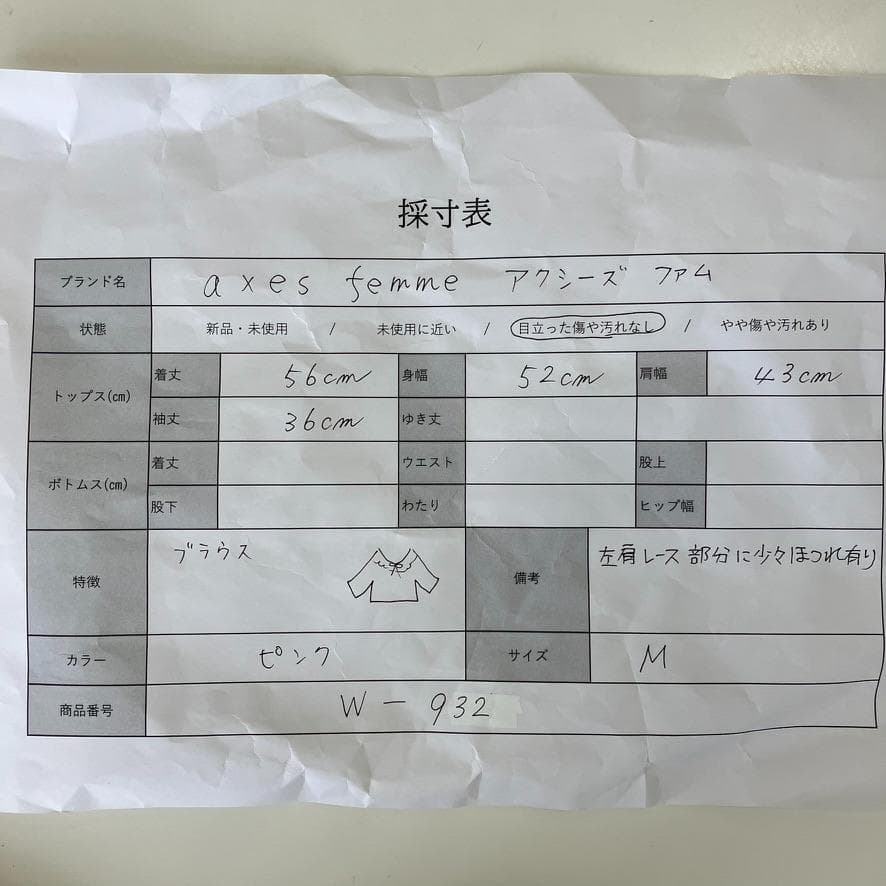 採寸表
ブランド名 axes femme アクシーズ ファム
状態 新品・未使用 / 未使用に近い / 目立った傷や汚れなし / やや傷や汚れあり
トップス(cm) 着丈 56cm 身幅 52cm 肩幅 43cm
袖丈 36cm ゆき丈
ボトムス(cm) 着丈 ウエスト 股上
股下 わたり ヒップ幅
特徴 ブラウス 備考 左肩レース部分に少々ほつれ有り
カラー ピンク サイズ M
商品番号 W-932